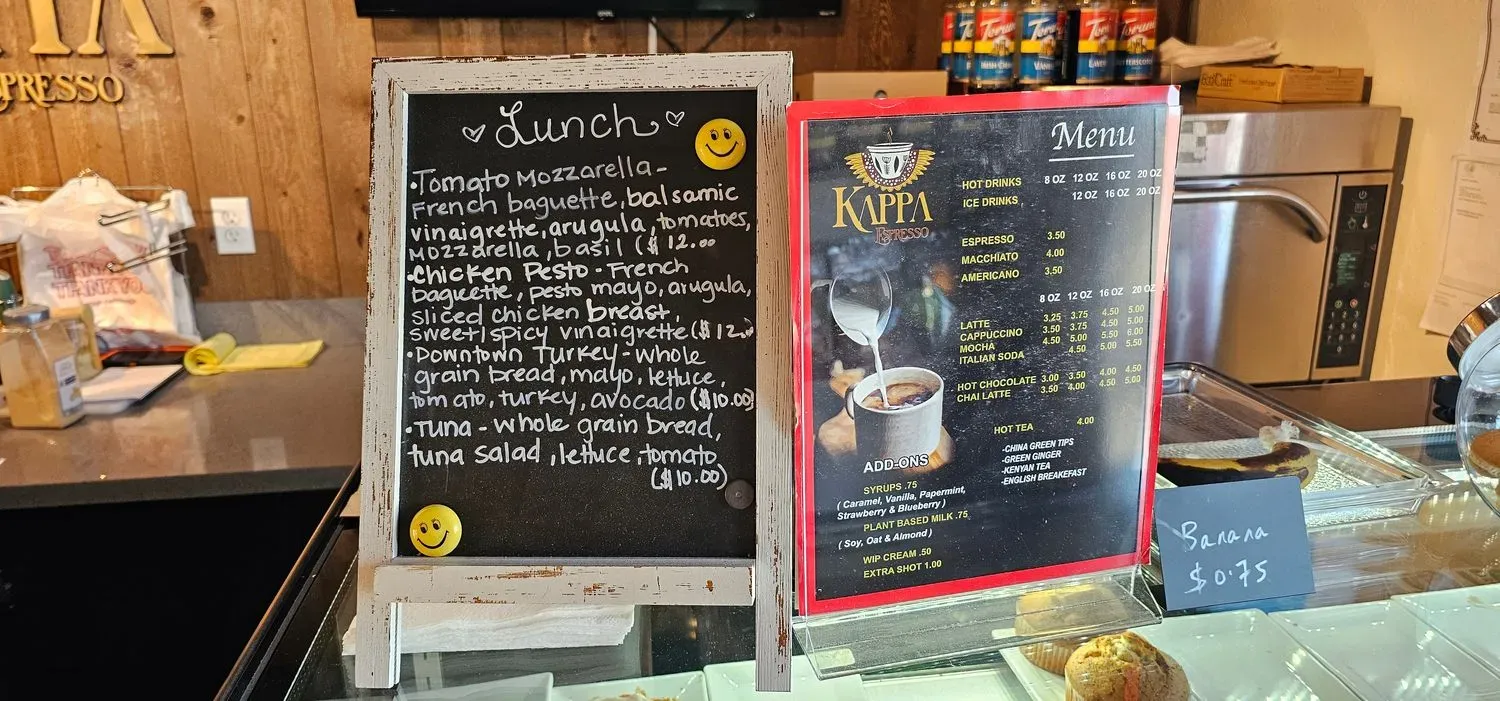 ESPRESSO
Lunch
•Tomato Mozzarella-
French baguette, balsamic
vinaigrette, arugula, tomatoes,
mozzarella, basil ($12.00
•Chicken Pesto - French
baguette, pesto mayo, arugula,
sliced chicken breast,
sweet/spicy vinaigrette ($12.
•Downtown Turkey - whole
grain bread, mayo, lettuce,
tomato, turkey, avocado ($10.00)
•Tuna - whole grain bread,
tuna salad, lettuce, tomato
($10.00)
KAPPA
ESPRESSO
Menu
HOT DRINKS 8 OZ 12 OZ 16 OZ 20 OZ
ICE DRINKS 12 OZ 16 OZ 20 OZ
ESPRESSO 3.50
MACCHIATO 4.00
AMERICANO 3.50
8 OZ 12 OZ 16 OZ 20 OZ
LATTE 3.25 3.75 4.50 5.00
CAPPUCCINO 3.50 3.75 4.50 5.00
MOCHA 4.50 5.00 5.50 6.00
ITALIAN SODA 4.50 5.00 5.50
HOT CHOCOLATE 3.00 3.50 4.00 4.50
CHAI LATTE 3.50 4.00 4.50 5.00
HOT TEA 4.00
-CHINA GREEN TIPS
-GREEN GINGER
-KENYAN TEA
-ENGLISH BREAKEFAST
ADD-ONS
SYRUPS .75
( Caramel, Vanilla, Papermint,
Strawberry & Blueberry )
PLANT BASED MILK .75
( Soy, Oat & Almond )
WIP CREAM .50
EXTRA SHOT 1.00
Banana
$0.75
Torani
THANK YOU